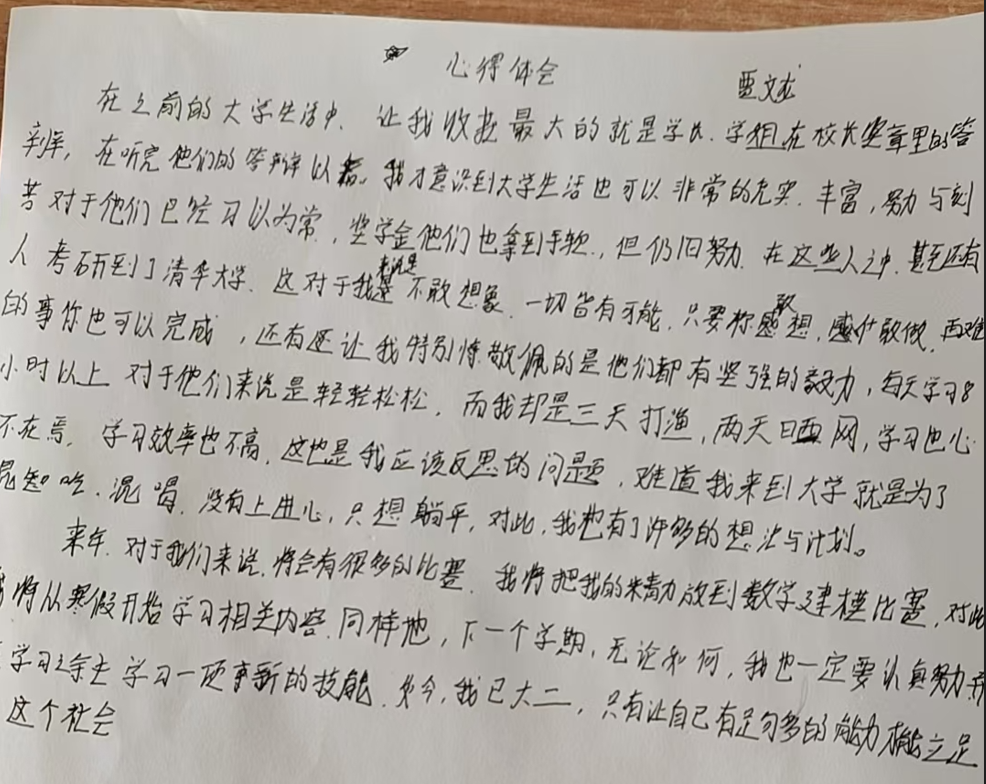 心得体会
贾文龙
在之前的大学生活中，让我收获最大的就是学长、学姐在校长奖章里的答
辩，在听完他们的答辩以后，我才意识到大学生活也可以非常的充实、丰富，努力与刻
苦对于他们已经习以为常，奖学金他们也拿到手软，但仍旧努力。在这些人之中，甚至还有
人考研到了清华大学，这对于我来说是不敢想象，一切皆有可能，只要你敢想，敢做，再难
的事你也可以完成，还有还让我特别敬佩的是他们都有坚强的毅力，每天学习8
小时以上对于他们来说是轻轻松松，而我却是三天打渔，两天晒网，学习也心
不在焉，学习效率也不高，这也是我应该反思的问题，难道我来到大学就是为了
混知吃、混喝，没有上进心，只想躺平，对此，我也有了许多的想法与计划。
来年，对于我们来说，将会有很多的比赛，我将把我的精力放到数学建模比赛，对此
我将从寒假开始学习相关内容，同样地，下一个学期，无论如何，我也一定要认真努力
学习之余去学习一项更新的技能，如今，我已大二，只有让自己有足够多的能力才能立足
这个社会